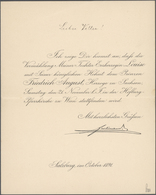 Lieber Vetter!
Ich zeige Dir hiermit an, daß die
Vermählung Meiner Tochter Erzherzogin Louise
mit Seiner königlichen Hoheit dem Herrn
Friedrich August, Herzoge zu Sachsen,
Samstag den 21. November l. J. in der Hofburg-
Pfarrkirche in Wien stattfinden wird.
Mit herzlichsten Grüßen
Salzburg, im October 1891.